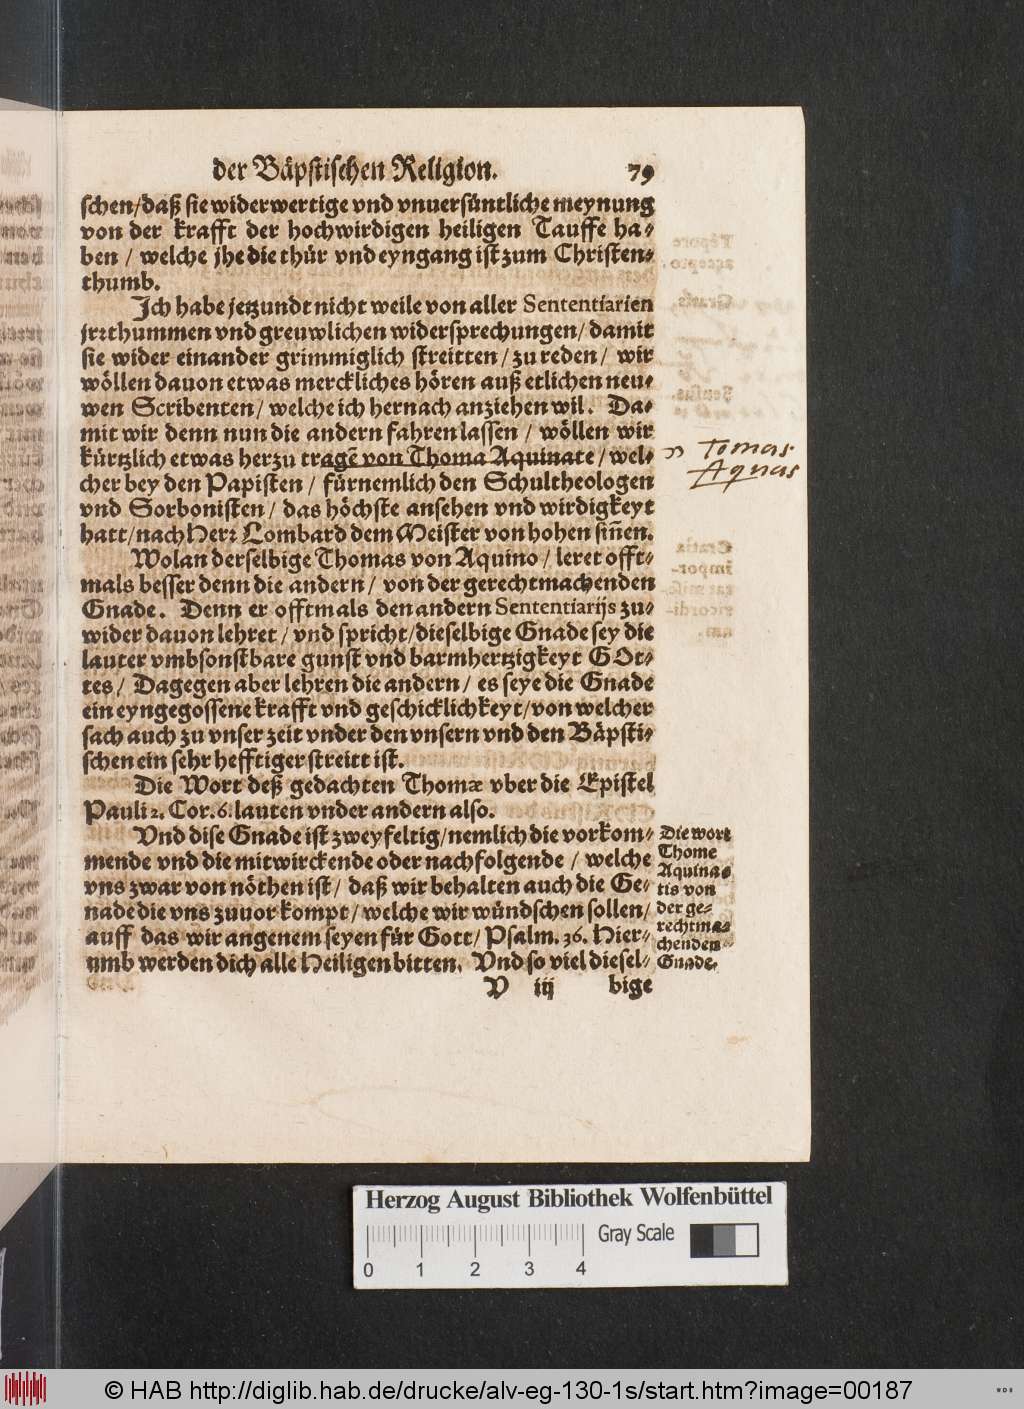 der Bäpstischen Religion. 79
schen/daß sie widerwertige vnd vnuersüntliche meynung
von der krafft der hochwirdigen heiligen Tauffe ha-
ben / welche jhe die thür vnd eyngang ist zum Christen-
thumb.
Ich habe jetzundt nicht weile von aller Sententiarien
jrrthummen vnd greuwlichen widersprechungen/ damit
sie wider einander grimmiglich streitten/ zu reden/ wir
wöllen dauon etwas merckliches hören auß etlichen neu-
wen Scribenten/ welche ich hernach anziehen wil. Da-
mit wir denn nun die andern fahren lassen / wöllen wir
kürtzlich etwas herzu tragē von Thoma Aquinate/ wel-
cher bey den Papisten / fürnemlich den Schultheologen
vnd Sorbonisten/ das höchste ansehen vnd wirdigkeyt
hatt/nach Herr Lombard dem Meister von hohen sin̄en.
Tomas
Aquas
Wolan derselbige Thomas von Aquino / leret offt-
mals besser denn die andern/ von der gerechtmachenden
Gnade. Denn er offtmals den andern Sententiarijs zu-
wider dauon lehret / vnd spricht/dieselbige Gnade sey die
lauter vmbsonstbare gunst vnd barmhertzigkeyt GOt-
tes/ Dagegen aber lehren die andern/ es seye die Gnade
ein eyngegossene krafft vnd geschicklichkeyt/von welcher
sach auch zu vnser zeit vnder den vnsern vnd den Bäpsti-
schen ein sehr hefftiger streitt ist.
Die Wort deß gedachten Thomæ vber die Epistel
Pauli 2. Cor. 6. lauten vnder andern also.
Vnd dise Gnade ist zweyfeltig/nemlich die vorkom-
mende vnd die mitwirckende oder nachfolgende / welche
vns zwar von nöthen ist/ daß wir behalten auch die Ge-
nade die vns zuuor kompt/welche wir wündschen sollen/
auff das wir angenem seyen für Gott/ Psalm. 36. Hier-
umb werden dich alle Heiligen bitten. Vnd so viel diesel-
Die wort
Thome
Aquina-
tis von
der ge-
rechtma-
chenden
Gnade.
V iij bige
Herzog August Bibliothek Wolfenbüttel
Gray Scale
0 1 2 3 4
© HAB http://diglib.hab.de/drucke/alv-eg-130-1s/start.htm?image=00187